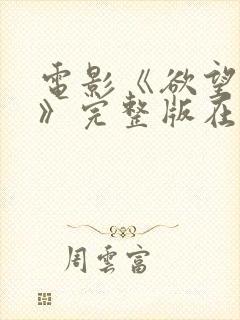 電影《欲望
》完整版在
周雲富